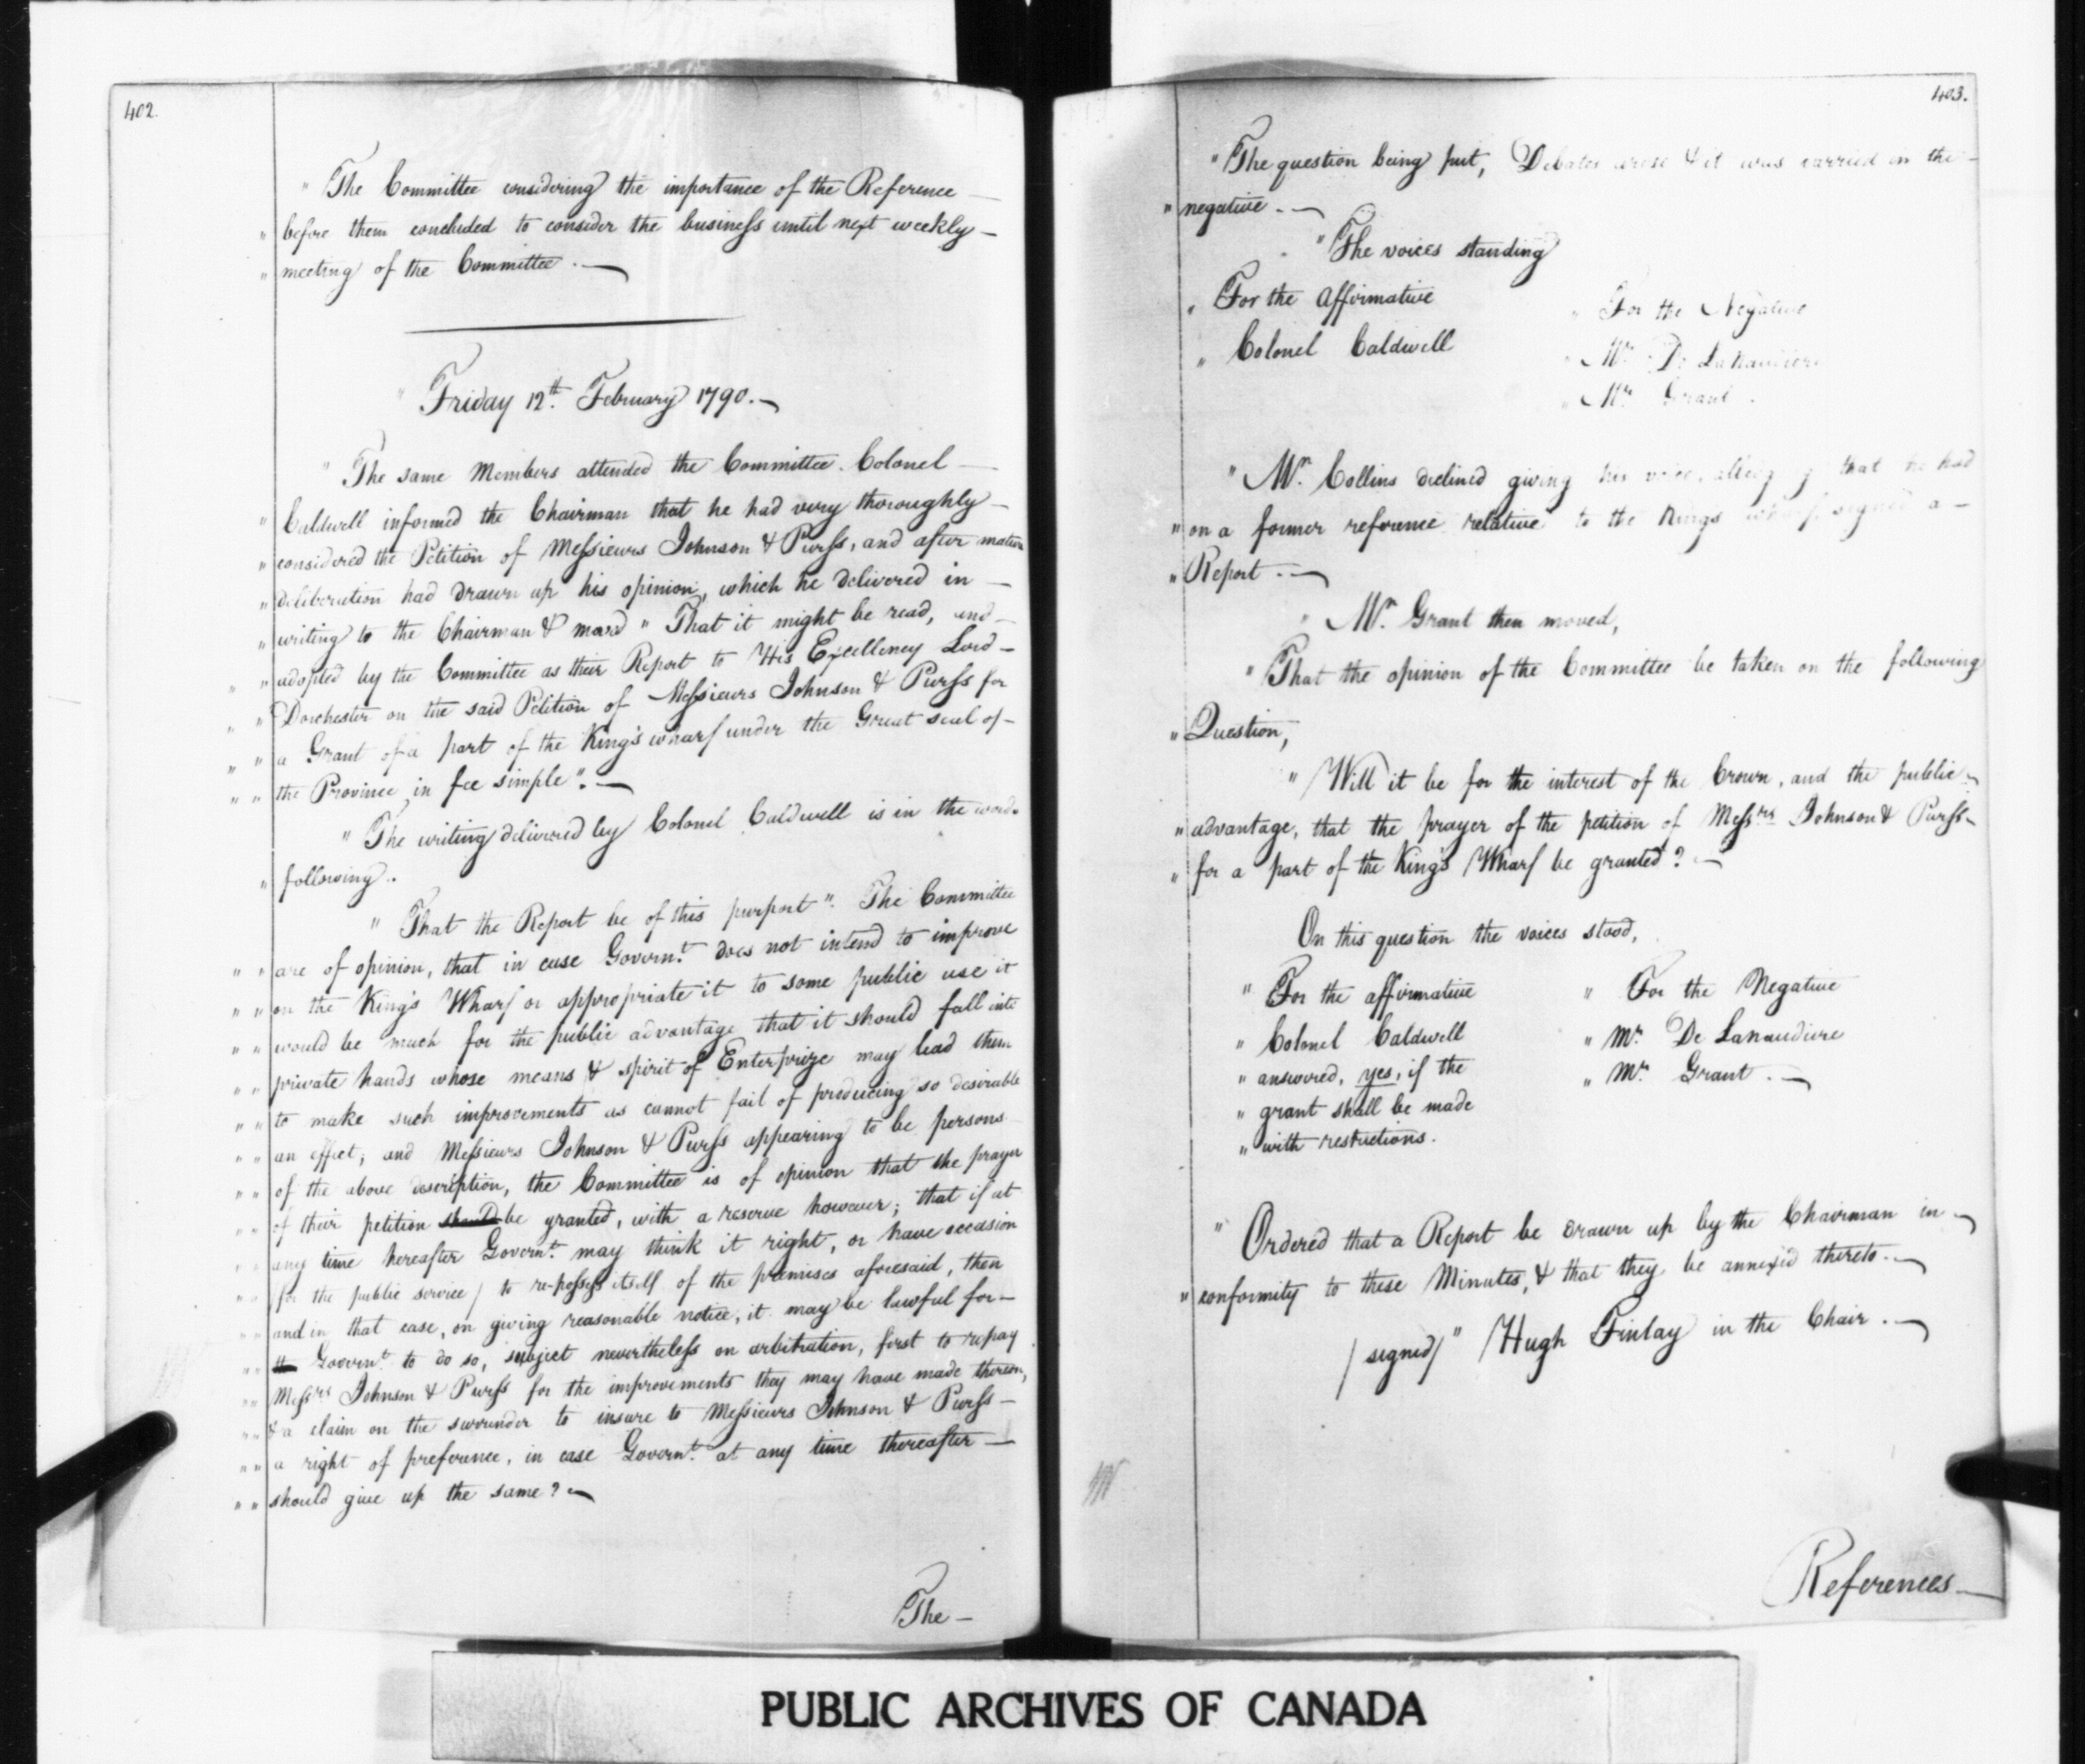 402.
" The Committee considering the importance of the Reference —
" before them concluded to consider the business until next weekly —
" meeting of the Committee. —
" Friday 12th. February 1790. —
" The same Members attended the Committee. Colonel —
" Caldwell informed the Chairman that he had very thoroughly —
" considered the Petition of Messieurs Johnson & Purss, and after mature
" deliberation had drawn up his opinion, which he delivered in —
" writing to the Chairman & mov'd " That it might be read, and —
" " adopted by the Committee as their Report to His Excellency Lord —
" " Dorchester on the said Petition of Messieurs Johnson & Purss for
" " a Grant of a part of the King's wharf under the Great seal of —
" " the Province in fee simple". —
" The writing delivered by Colonel Caldwell is in the words
" following.
" That the Report be of this purport". The Committee
" " are of opinion, that in case Governt. does not intend to improve
" " on the King's Wharf or appropriate it to some public use it
" " would be much for the public advantage that it should fall into
" " private hands whose means & spirit of Enterprize may lead them
" " to make such improvements as cannot fail of producing so desirable
" " an effect; and Messieurs Johnson & Purss appearing to be persons
" " of the above description, the Committee is of opinion that the prayer
" " of their petition should be granted, with a reserve however; that if at
" " any time hereafter Governt. may think it right, or have occasion
" " (for the public service) to re-possess itself of the premises aforesaid, then
" " and in that case, on giving reasonable notice, it may be lawful for —
" " Governt. to do so, subject nevertheless on arbitration, first to repay
" " Messrs Johnson & Purss for the improvements they may have made thereon,
" " & a claim on the surrender to insure to Messieurs Johnson & Purss —
" " a right of preference, in case Governt. at any time thereafter —
" " should give up the same? —
The —
403.
" The question being put, Debates arose & it was carried in the —
" negative. —
" The voices standing
" For the Affirmative
" For the Negative
" Colonel Caldwell
" Mr. De Lanaudiere
" Mr. Grant.
" Mr. Collins declined giving his voice, alledging that he had
" on a former reference relative to the Kings wharf signed a —
" Report. —
" Mr. Grant then moved,
" That the opinion of the Committee be taken on the following
" Question,
" Will it be for the interest of the Crown, and the public —
" advantage, that the prayer of the petition of Messrs Johnson & Purss —
" for a part of the King's Wharf be granted? —
On this question the voices stood,
" For the affirmative
" For the Negative
" Colonel Caldwell
" Mr. De Lanaudiere
" answered, yes, if the
" Mr. Grant. —
" grant shall be made
" with restrictions.
" Ordered that a Report be drawn up by the Chairman in —
" conformity to these Minutes, & that they be annexed thereto. —
/signed/ " Hugh Finlay in the Chair. —
References —
PUBLIC ARCHIVES OF CANADA